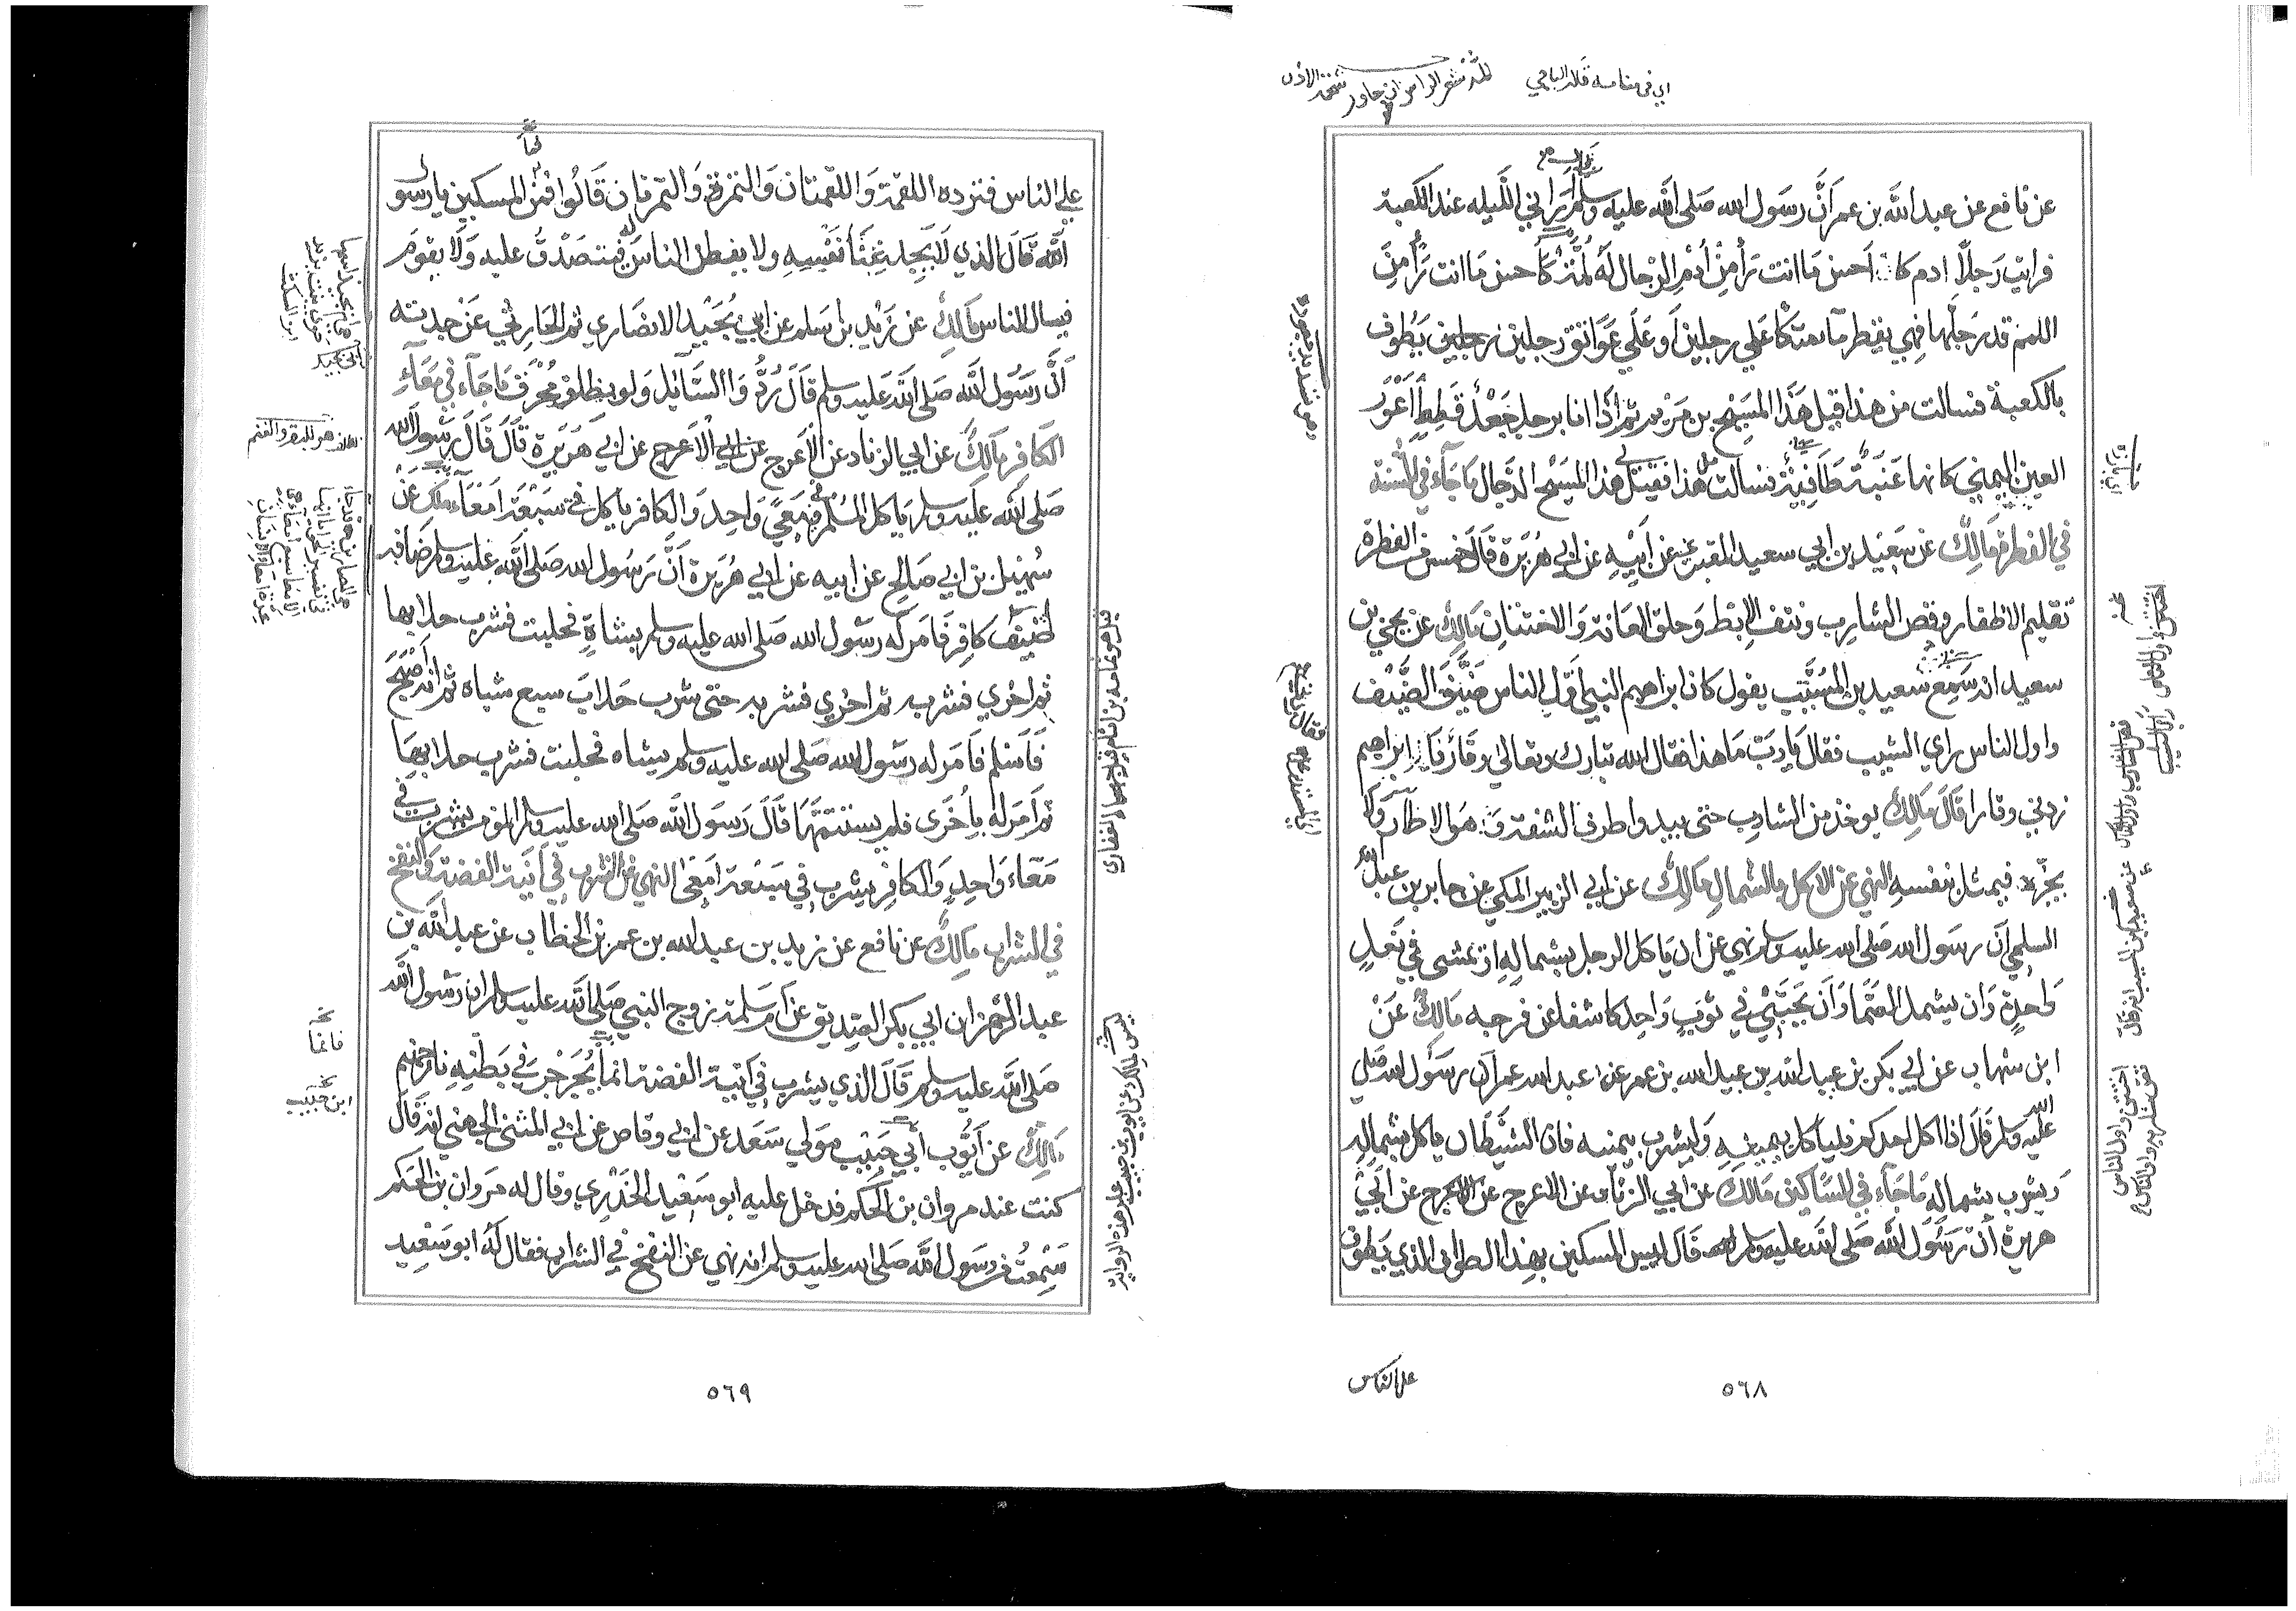 عن نافع عن عبد الله بن عمر أنّ رسول الله صلى الله عليه وسلم أراني الليله عند الكعبة
فرايت رجلاً ادم كاحسن ما انت رأ من أدم الرجال له لمّة كاحسن ما انت رأ من
اللمم قد رجلها فهي تقطر ما متكا على رجلين أو على عواتق رجلين يطوف
بالكعبة فسالت من هذا قيل هذا المسيح بن مريم ثم اذا انا برجل جعد قطط أعور
العين اليمني كانها عنبة طافية فسالت من هذا فقيل لي هذا المسيح الدجال ما جاء في السنة
في الفطرة مالك عن سعيد بن ابي سعيد المقبري عن أبيه عن ابي هريرة قال خمس من الفطرة
تقليم الاظفار وقص الشارب ونتف الابط وحلق العانة والاختتان مالك عن يحيى بن
سعيد انه سمع سعيد بن المسيّب يقول كان ابراهيم النبي اوّل الناس ضيّف الضيف
واول الناس راي الشيب فقال يا ربّ ما هذا فقال الله تبارك وتعالى وقار يا ابراهيم
زدني وقارا قال مالك يوخذ من الشارب حتى يبدوا طرف الشفة وهو الاطار ولا
يجزّه فيمثل بنفسه النهي عن الاكل بالشمال مالك عن ابي الزبير المكي عن جابر بن عبد الله
السلمي أن رسول الله صلى الله عليه وسلم نهي عن ان ياكل الرجل بشماله او يمشى في نعل
واحدة وان يشتمل الصّما وأن يحتبي في ثوب واحد كاشفا عن فرجه مالك عن
ابن شهاب عن ابي بكر بن عبيد الله بن عبد الله بن عمر عن عبد الله بن عمر أن رسول الله صلى
الله عليه وسلم قال اذا اكل احدكم فلياكل بيمينه وليشرب بيمينه فان الشيطان ياكل بشماله
ويشرب بشماله ما جاء في المساكين مالك عن ابي الزناد عن الاعرج عن ابي
هريرة أن رسول الله صلى الله عليه وسلم قال ليس المسكين بهذا الطواف الذي يطوف
على الناس
٥٦٨
على الناس فترده اللقمة واللقمتان والتمرة والتمرتان قالوا فمن المسكين يا رسول
الله قال الذي لا يجد غنًا نفسه ولا يفطن الناس له فيتصدّق عليه ولا يقوم
فيسال الناس مالك عن زيد بن اسلم عن ابن بُجيد الانصاري ثم الحارثي عن جدته
أنّ رسول الله صلى الله عليه وسلم قال ردُّوا السائل ولو بظلف محرق ما جاء في معاء
الكافر مالك عن ابي الزناد عن الاعرج عن ابي هريرة قال قال رسول الله
صلى الله عليه وسلم ياكل المسلم في معي واحد والكافر ياكل في سبعة امعاء مالك عن
سهيل بن ابي صالح عن ابيه عن ابي هريرة أنّ رسول الله صلى الله عليه وسلم ضافه
ضيف كافر فامر له رسول الله صلى الله عليه وسلم بشاة فحلبت فشرب حلابها
ثم اخري فشربه ثم اخري فشربه حتى شرب حلاب سبع شياه ثم انه أصبح
فأسلم فامر له رسول الله صلى الله عليه وسلم بشاه فحلبت فشرب حلابها
ثم أمر له بأخرى فلم يستتمّها قال رسول الله صلى الله عليه وسلم المؤمن يشرب في
معاء واحد والكافر يشرب في سبعة امعا النهي عن الشرب في آنية الفضة والنفخ
في الشراب مالك عن نافع عن زيد بن عبد الله بن عمر بن الخطاب عن عبد الله بن
عبد الرحمن بن ابي بكر الصديق عن أم سلمة زوج النبي صلى الله عليه وسلم ان رسول الله
صلى الله عليه وسلم قال الذي يشرب في آنية الفضة انما يُجرجر في بطنه نار جهنم
مالك عن أيّوب أبي حبيب مولي سعد عن ابي وقاص عن ابي المثنى الجهني انه قال
كنت عند مروان بن الحكم فدخل عليه ابو سعيد الخدري وقال له مروان بن الحكم
سمعت من رسول الله صلى الله عليه وسلم انه نهي عن النفخ في الشراب فقال له ابو سعيد
فانما
ابن حبيب
٥٦٩